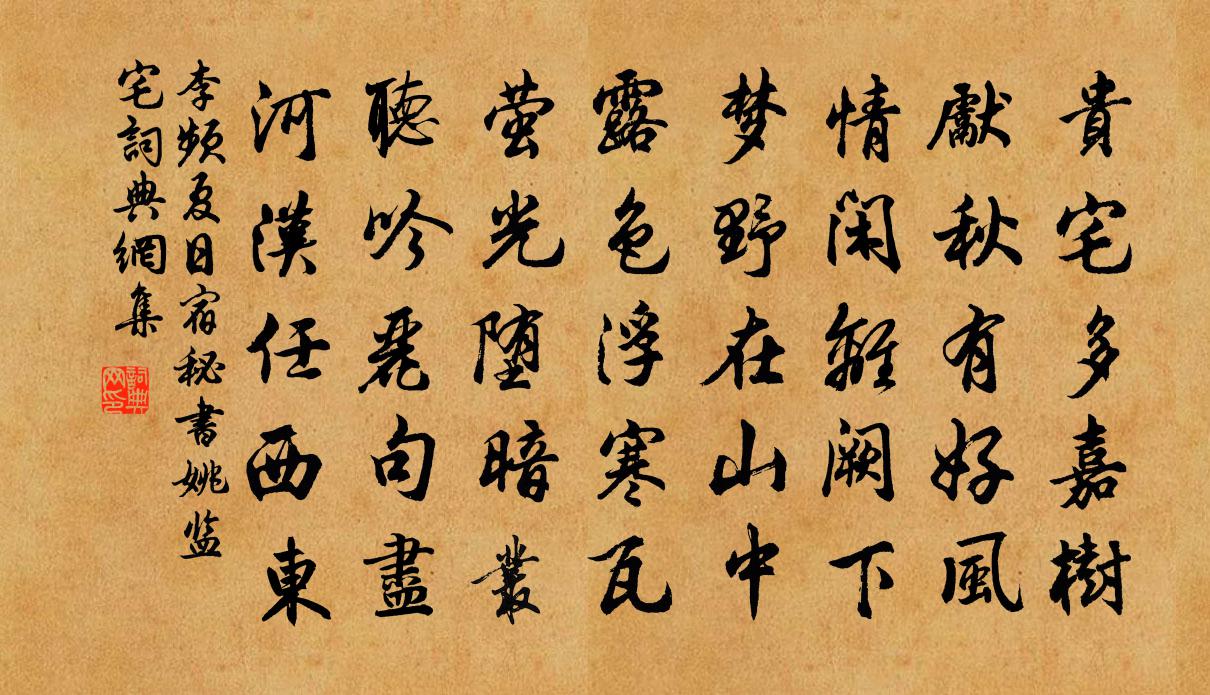 貴宅多嘉樹
獻秋有好風
情閑離闕下
梦野在山中
露色浮寒瓦
萤光堕暗叢
聽吟麗句盡
河漢任西東
李頻夏日宿秘書姚监
宅詞典網集
詞典网印